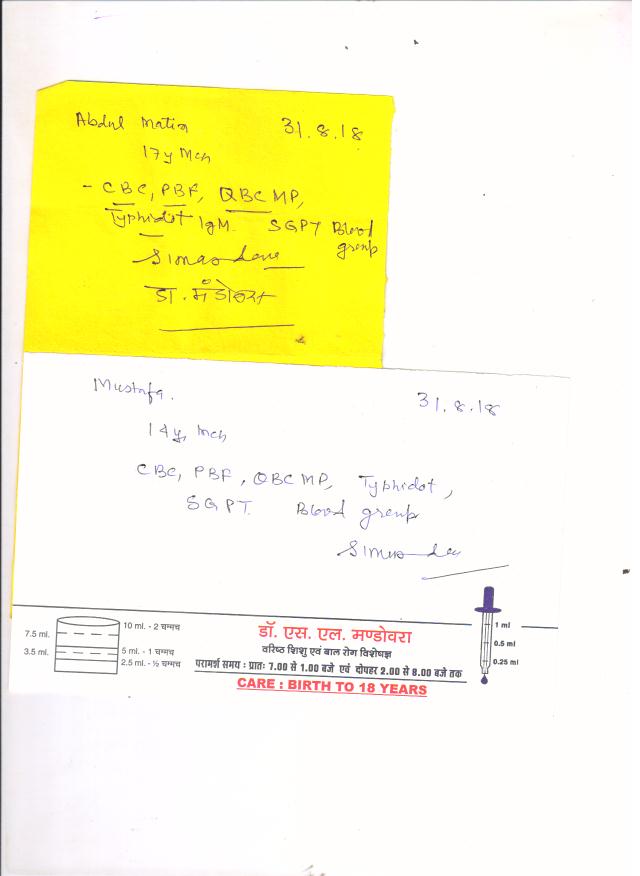 Abdul Matin 31.8.18
17y Mch
- CBC, PBF, QBC MP,
Typhidot IgM. SGPT Blood
group
डा. मंडोवरा
Mustafa. 31.8.18
14y Mch
CBC, PBF, QBC MP, Typhidot,
SGPT. Blood group
10 ml. - 2 चम्मच
7.5 ml.
5 ml. - 1 चम्मच
3.5 ml.
2.5 ml. - ½ चम्मच
डॉ. एस. एल. मण्डोवरा
वरिष्ठ शिशु एवं बाल रोग विशेषज्ञ
परामर्श समय : प्रातः 7.00 से 1.00 बजे एवं दोपहर 2.00 से 8.00 बजे तक
CARE : BIRTH TO 18 YEARS
1 ml
0.5 ml
0.25 ml